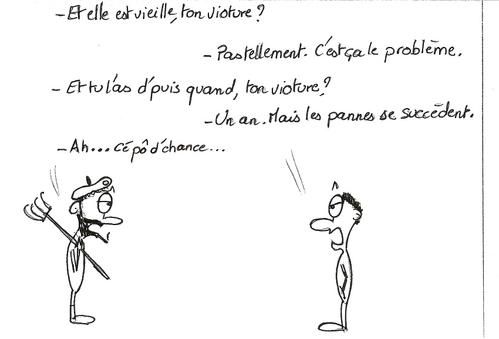 - Et elle est vieille, ton vioture ?
- Pas tellement. C'est ça le problème.
- Et tu l'as d'puis quand, ton vioture ?
- Un an. Mais les pannes se succèdent.
- Ah... cé pô d'chance...